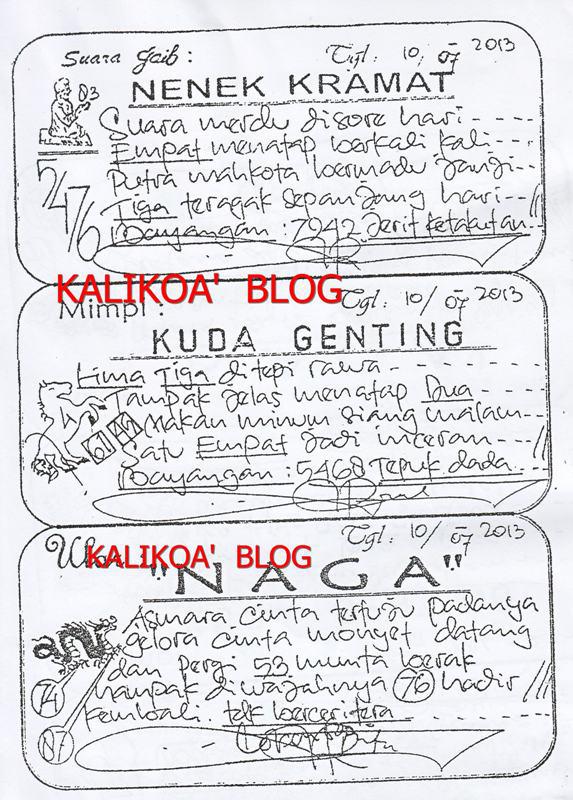 Suara Gaib : Tgl : 10, 07 2013
NENEK KRAMAT
03
Suara merdu disore hari
Empat menatap berkali kali
Putra mahkota bermadu janji
Tiga teragak sepanjang hari
2476
Bayangan : 7942 Jerit ketakutan
KALIKOA' BLOG
Mimpi : Tgl : 10/ 07 2013
KUDA GENTING
Lima Tiga ditepi rawa
Tampak jelas menatap Dua
Makan minum siang malam
61 42
Satu Empat Jadi inceran
Bayangan : 5468 Tepuk dada
Tgl : 10/ 07 2013
KALIKOA' BLOG
"NAGA"
Asmara cinta tertuju padanya
gelora cinta monyet datang
dan pergi 53 munta berak
nampak diwajahnya 76 hadir
74
kembali tdk berceritera